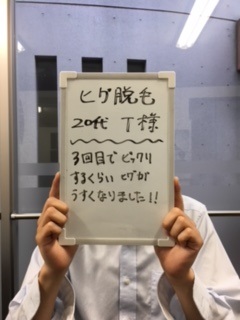 ヒゲ脱毛
20代 T様
3回目でビックリ
するくらい ヒゲが
うすくなりました!!